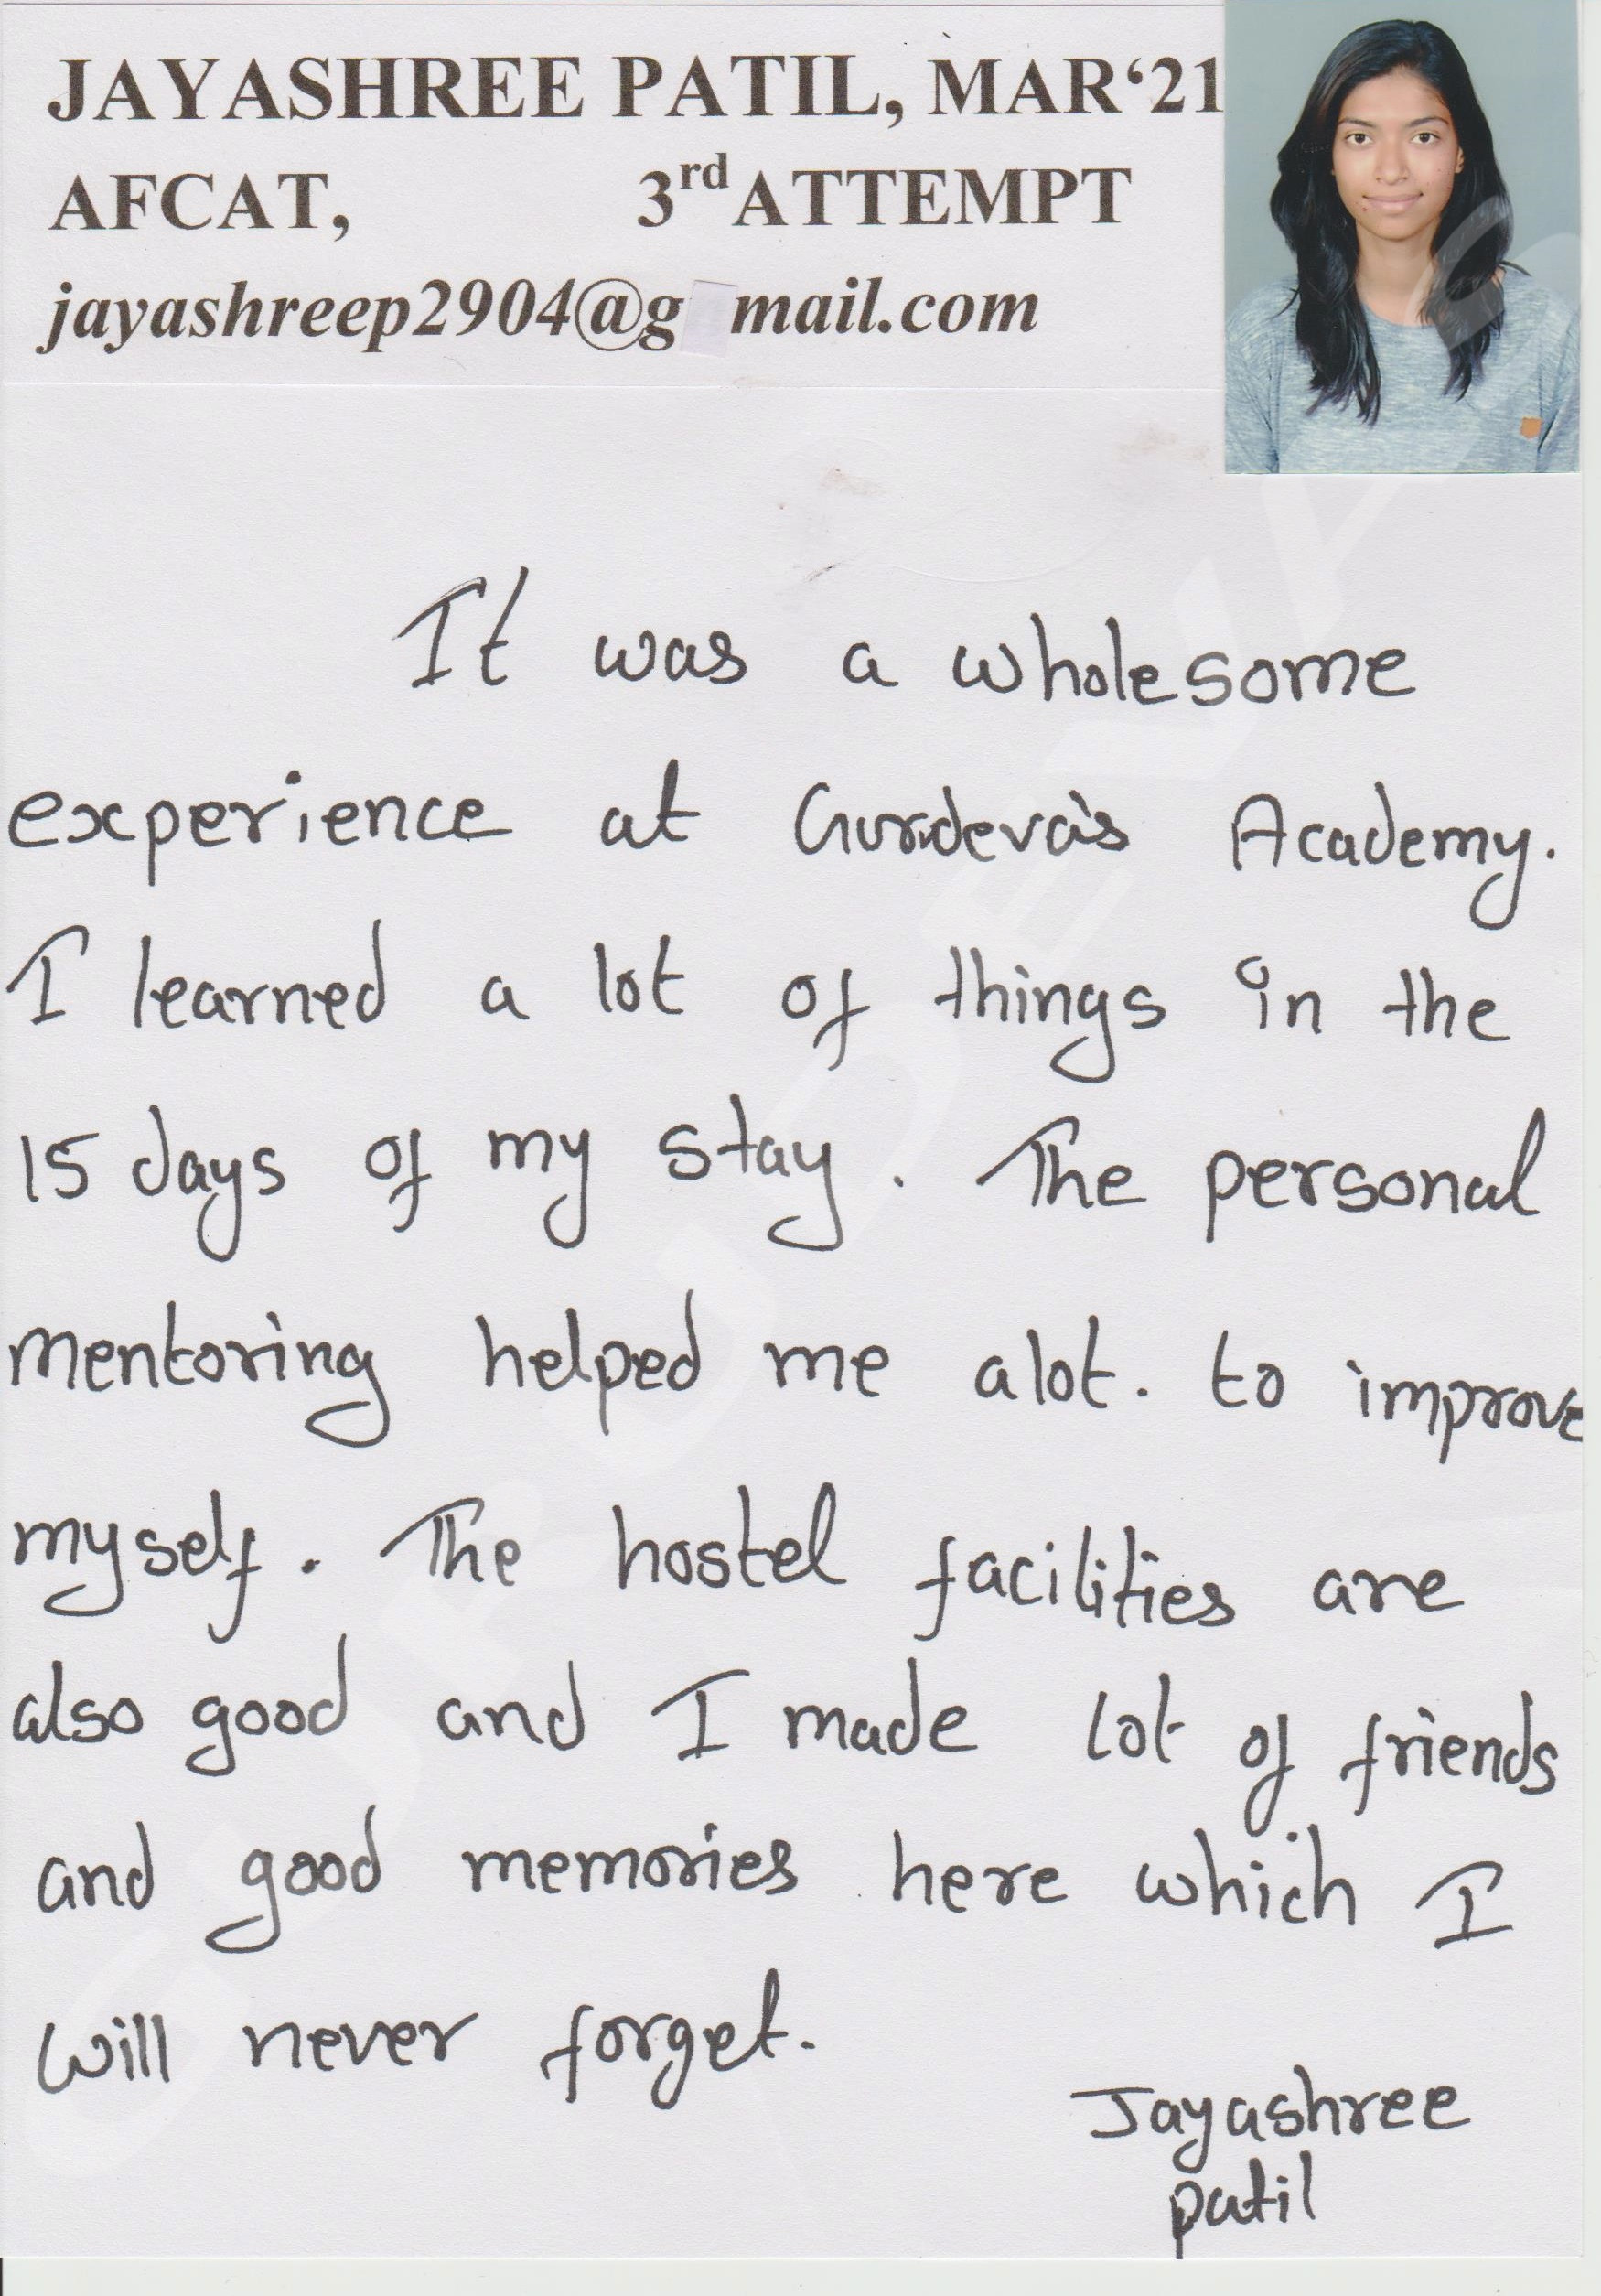 JAYASHREE PATIL, MAR‘21
AFCAT, 3rd ATTEMPT
jayashreep2904@g mail.com
It was a wholesome
experience at Gurdeva's Academy.
I learned a lot of things in the
15 days of my stay. The personal
mentoring helped me alot. to improve
myself. The hostel facilities are
also good and I made lot of friends
and good memories here which I
will never forget.
Jayashree
patil